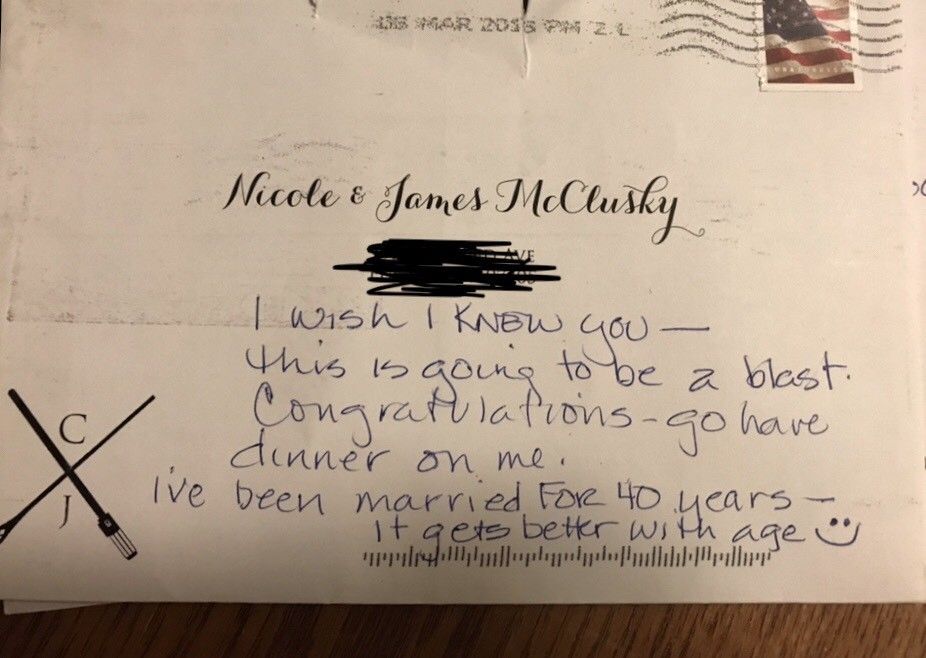 MAR PM
Nicole & James McClusky
AVE
I wish I KNEW you —
this is going to be a blast.
Congratulations - go have
dinner on me.
C
J
I've been married FOR 40 years —
It gets better with age